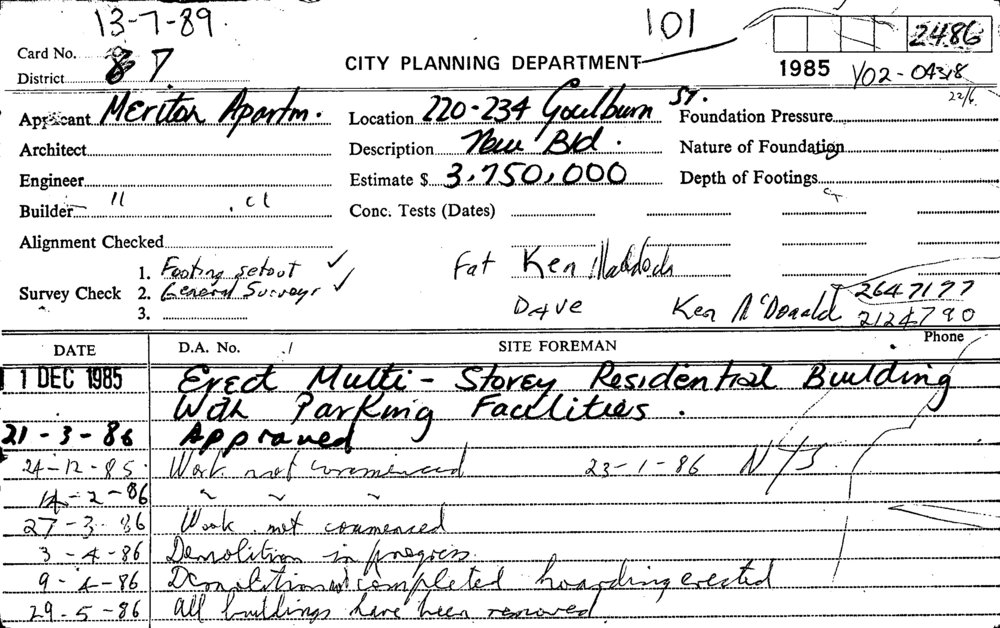 13-7-89 101
Card No. 2486
District 87 CITY PLANNING DEPARTMENT 1985 Y02-04318
22/6
Applicant Meriton Apartm. Location 220-234 Goulburn ST. Foundation Pressure
Architect Description New Bld. Nature of Foundation
Engineer Estimate $ 3,750,000 Depth of Footings
Builder 11 . ct Conc. Tests (Dates)
Alignment Checked
1. Footing setout ✓ Fat Ken Maddock
Survey Check 2. General Surveys ✓ 2647177
3. Dave Ken McDonald 2124790
DATE D.A. No. SITE FOREMAN Phone
11 DEC 1985 Erect Multi-Storey Residential Building
With Parking Facilities.
21-3-86 Approved
24-12-85. Work not commenced 23-1-86 NTS
14-2-86 ~ ~ ~
27-3-86 Work not commenced
3-4-86 Demolition in progress
9-4-86 Demolition completed hoarding erected
29-5-86 All buildings have been removed